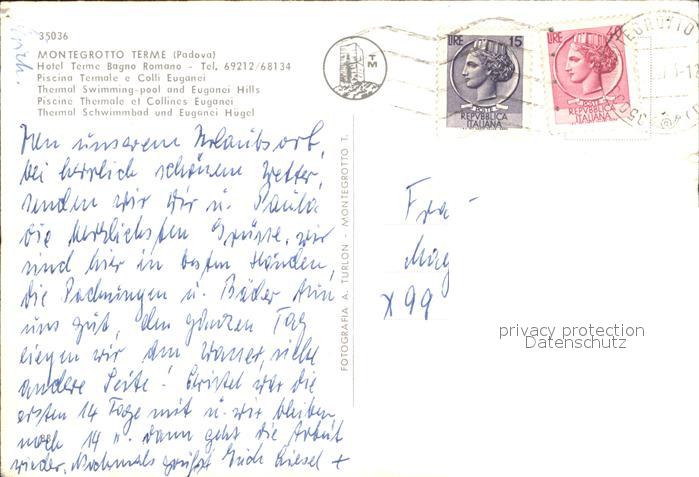 35036
MONTEGROTTO TERME (Padova)
Hotel Terme Bagno Romano - Tel. 69212/68134
Piscina Termale e Colli Euganei
Thermal Swimming-pool and Euganei Hills
Piscine Thermale et Collines Euganei
Thermal Schwimmbad und Euganei Hügel
LIRE 15
POSTE
REPVBBLICA
ITALIANA
LIRE
POSTE
REPVBBLICA
ITALIANA
Von unserem Urlaubsort,
bei herrlich schönem Wetter,
senden wir Dir u. Paula
die herzlichsten Grüsse. wir
sind hier in besten Händen,
die Packungen u. Bäder tun
uns gut, den ganzen Tag
liegen wir am Wasser, siehe
andere Seite! Christel war die
ersten 14 Tage mit u. wir bleiben
noch 14 u. dann geht die Arbeit
wieder. Nochmals grüßt Euch Liesel +
FOTOGRAFIA A. TURLON - MONTEGROTTO T.
Fra -
X 99
privacy protection
Datenschutz